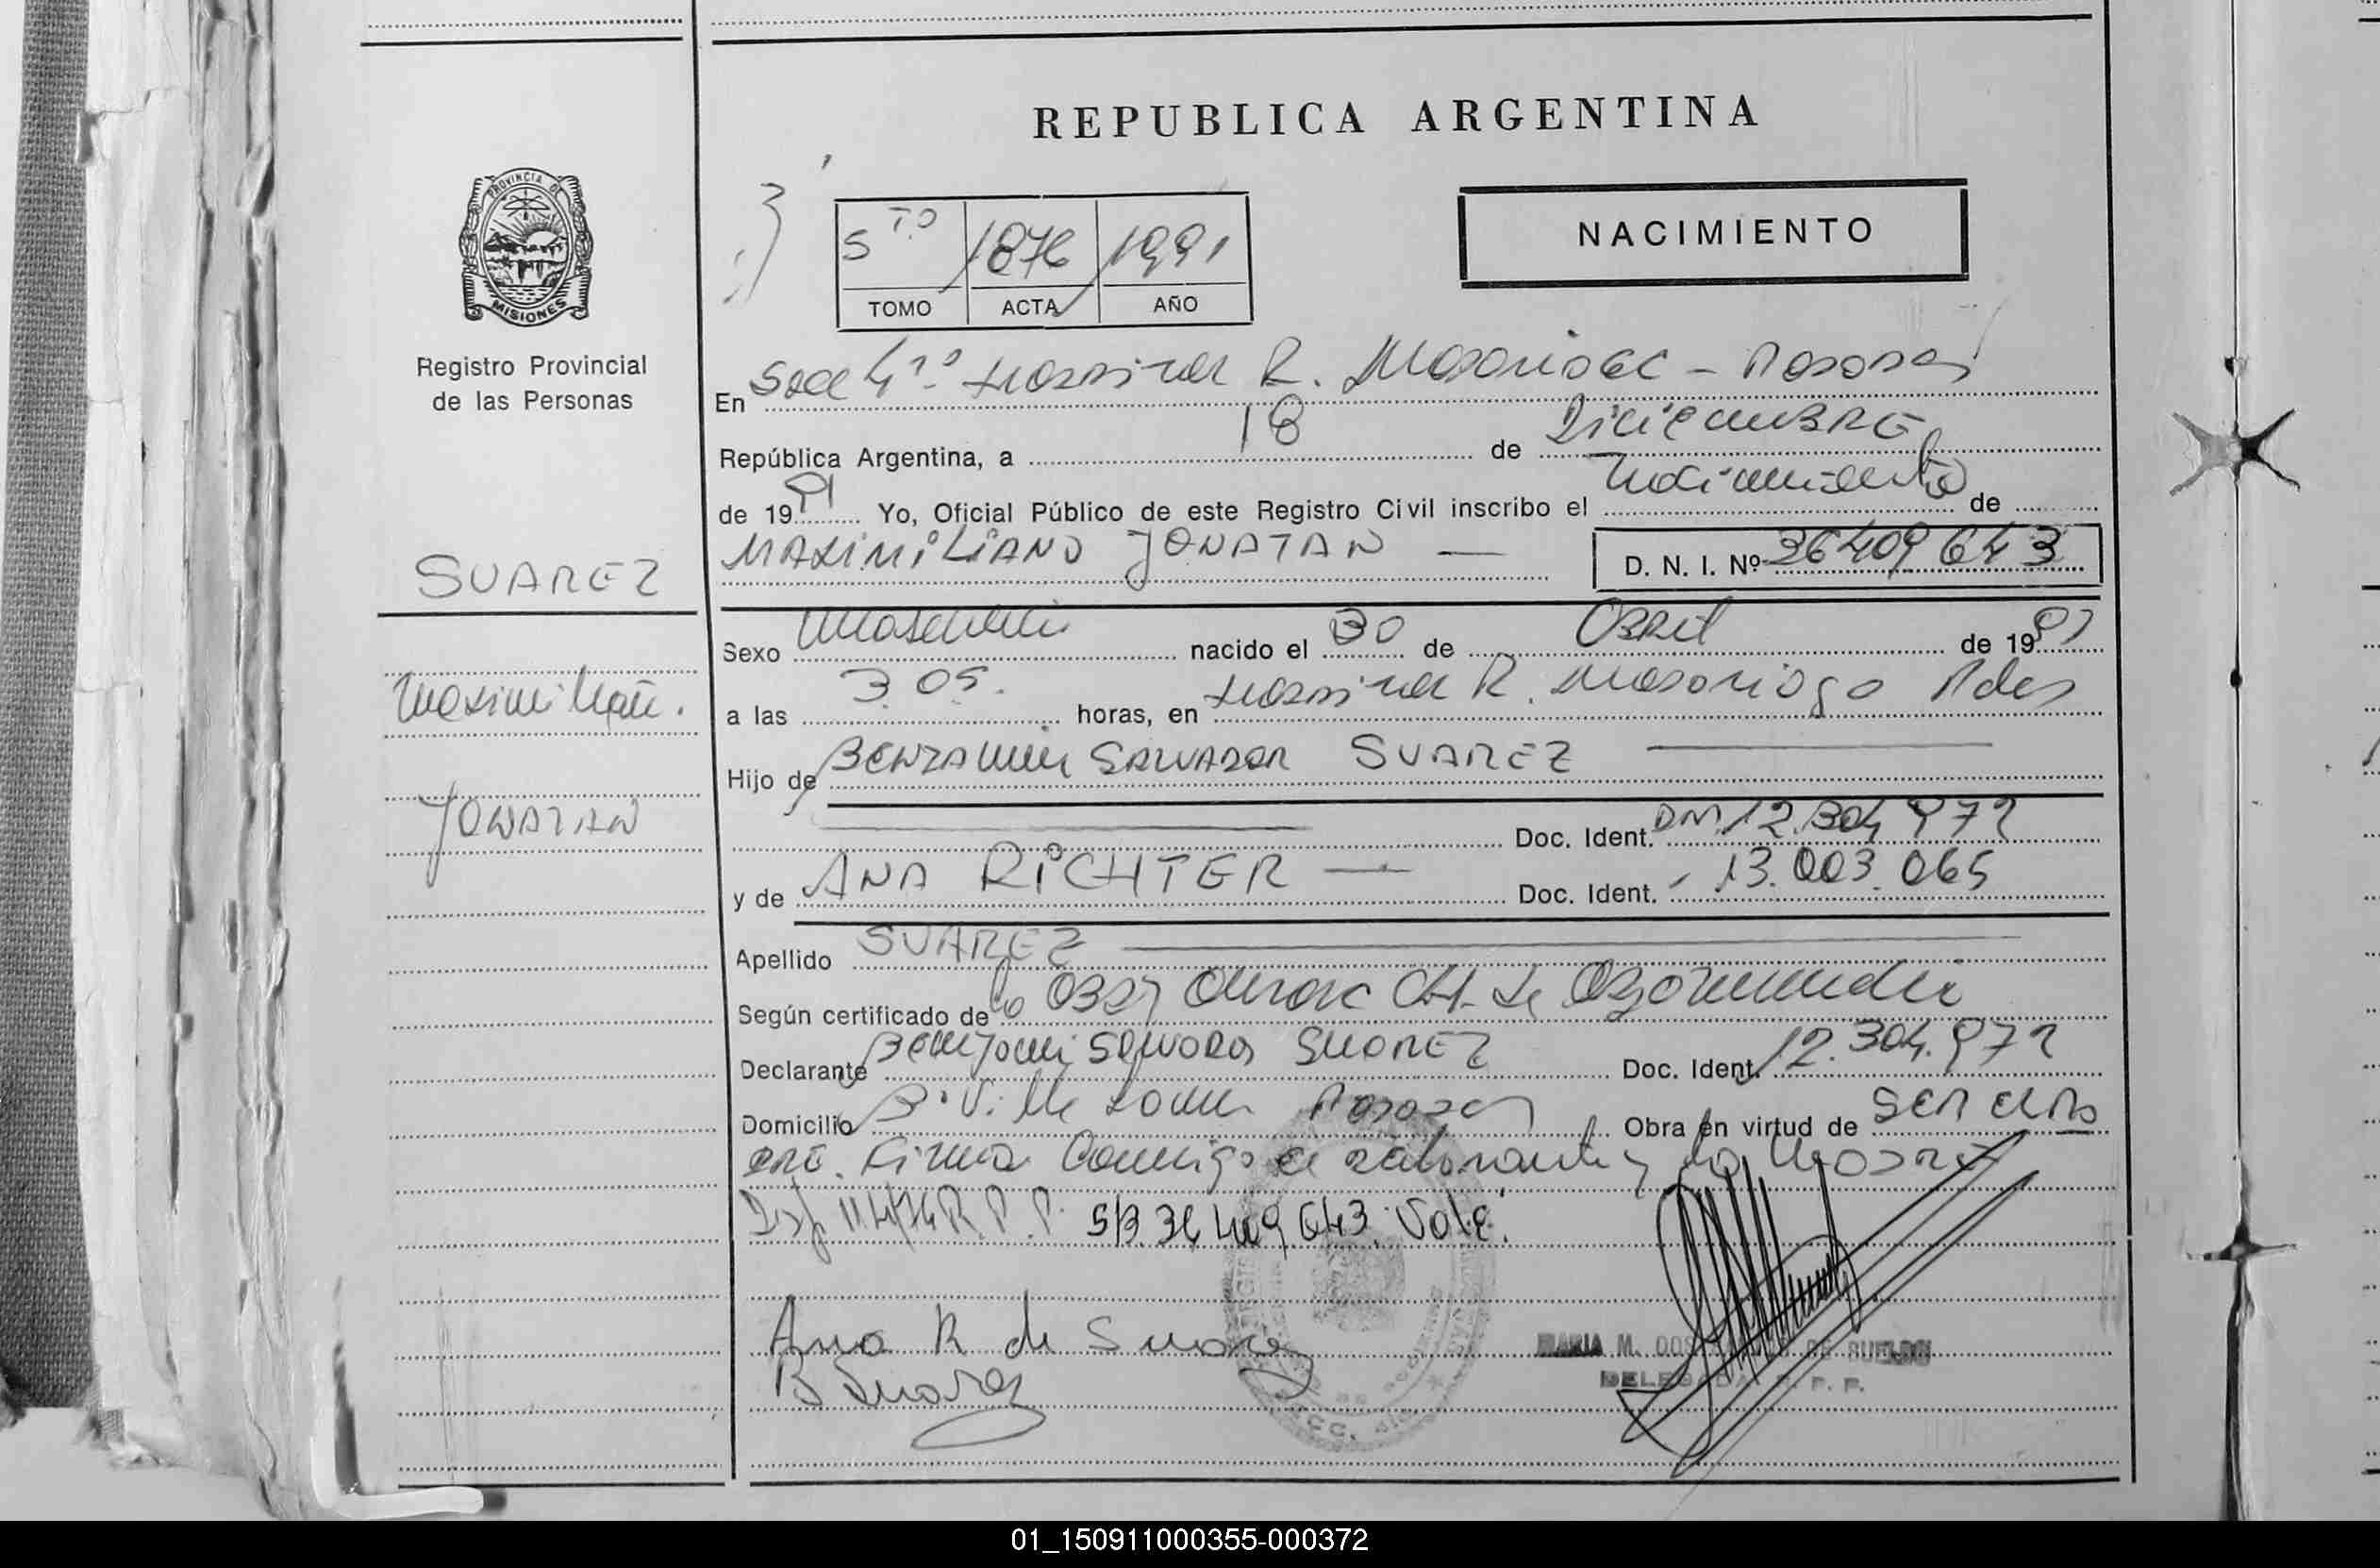 REPUBLICA ARGENTINA
PROVINCIA DE
MISIONES
Registro Provincial
de las Personas
5 TO 1876 1991
TOMO ACTA AÑO
NACIMIENTO
En Secc 4 R. Madariaga - Posadas
República Argentina, a 18 de Diciembre
de 1991 Yo, Oficial Público de este Registro Civil inscribo el nacimiento de
MAXIMILIANO JONATAN D. N. I. Nº 36409643
SUAREZ
Maximiliano
JONATAN
Sexo Masculino nacido el 30 de Abril de 1991
a las 3.05. horas, en R. Madariaga Pdas
Hijo de BENJAMIN SALVADOR SUAREZ
Doc. Ident. DNI. 12.304.972
y de ANA RICHTER Doc. Ident. 13.003.065
Apellido SUAREZ
Según certificado de la Obst
Declarante Benjamin Salvador SUAREZ Doc. Ident. 12.304.972
Domicilio B. Posadas Obra en virtud de SER EL PA
DRE. Firma Conmigo el declarante y la Madre
Disp R.P.P. S/B. 36409643. Vale.
Ana R de Suarez
B Suarez
MARIA M. DOS DE SUELDO
DELEGADA R. P. P.
01_150911000355-000372